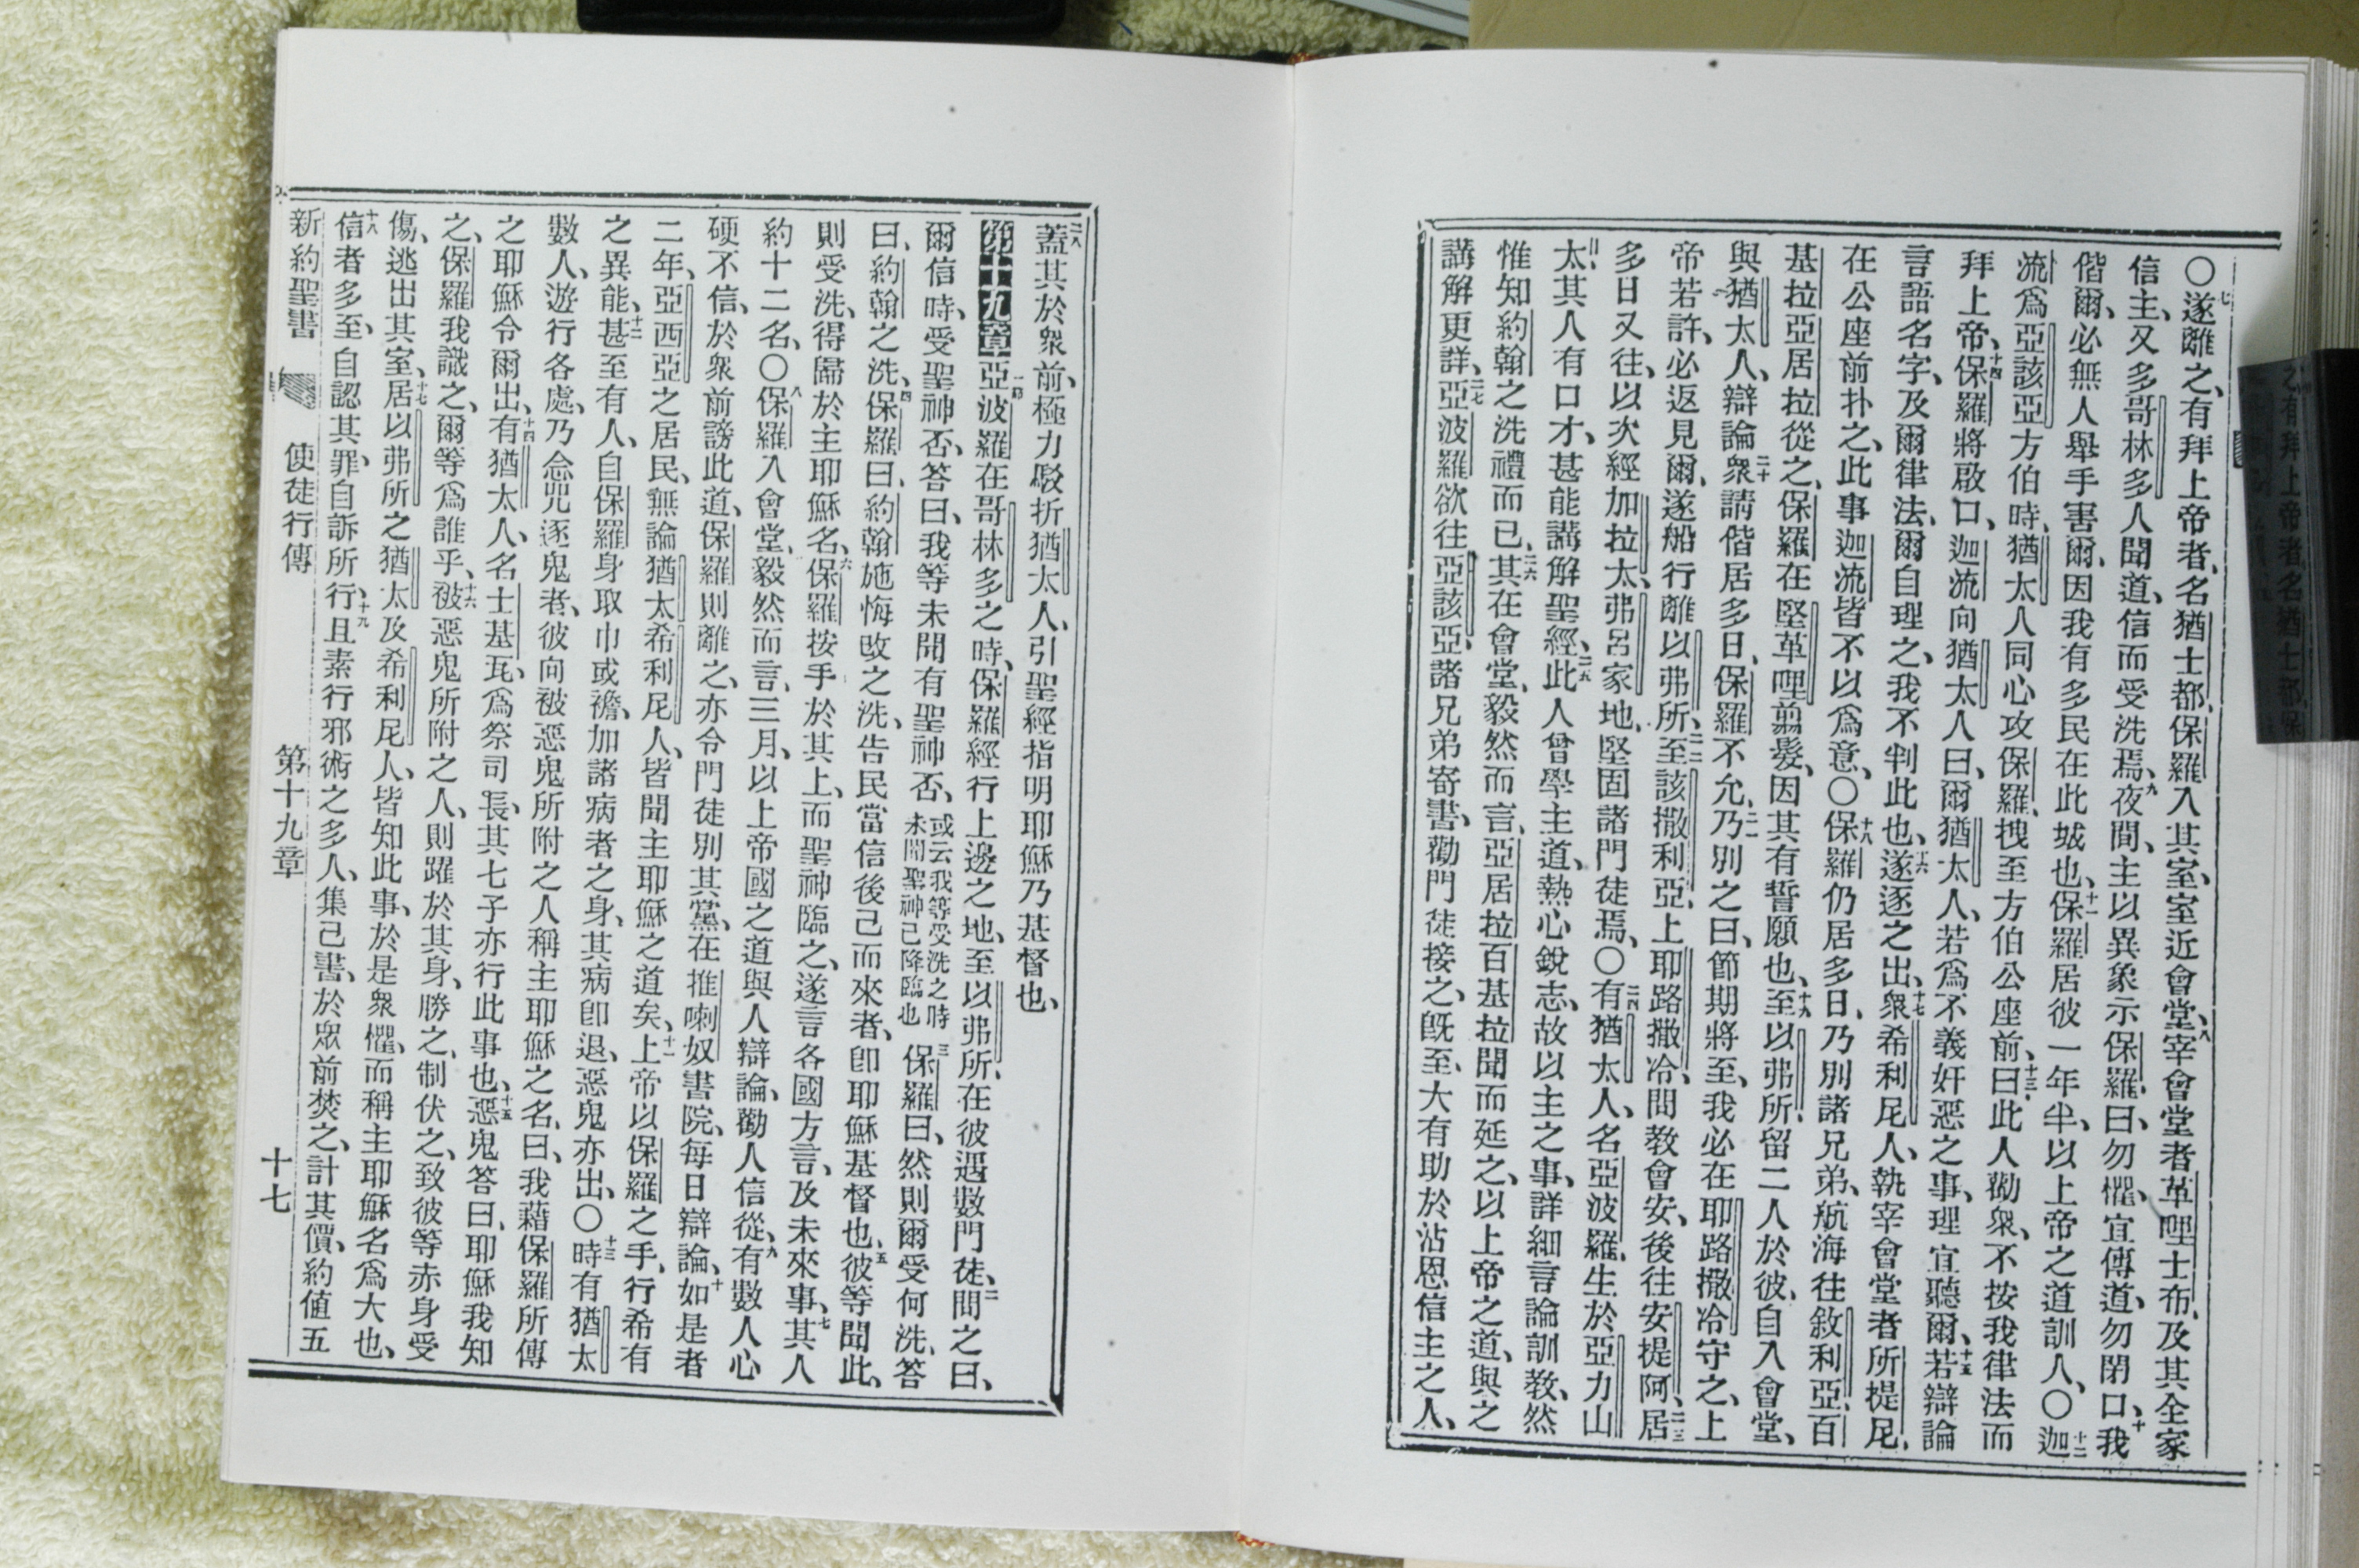 ○七遂離之、有拜上帝者、名猶士都、保羅入其室、室近會堂、八宰會堂者革哩士布、及其全家
信主、又多哥林多人聞道、信而受洗焉、九夜間、主以異象示保羅、曰、勿懼、宜傳道、勿閉口、十我
偕爾、必無人舉手害爾、因我有多民在此城也、十一保羅居彼一年半、以上帝之道訓人、○十二迦
流爲亞該亞方伯時、猶太人同心攻保羅、拽至方伯公座前、十三曰、此人勸衆、不按我律法而
拜上帝、十四保羅將啟口、迦流向猶太人曰、爾猶太人、若爲不義奸惡之事、理宜聽爾、十五若辯論
言語名字、及爾律法、爾自理之、我不判此也、十六遂逐之出、十七衆希利尼人、執宰會堂者所提尼、
在公座前扑之、此事迦流皆不以爲意、○十八保羅仍居多日、乃別諸兄弟、航海往敘利亞、百
基拉亞居拉從之、保羅在堅革哩翦髮、因其有誓願也、十九至以弗所、留二人於彼、自入會堂、
與猶太人、辯論、二十衆請偕居多日、保羅不允、二一乃別之曰、節期將至、我必在耶路撒冷守之、上
帝若許、必返見爾、遂船行離以弗所、二二至該撒利亞、上耶路撒冷、問教會安、後往安提阿、二三居
多日又往、以次經加拉太、弗呂家地、堅固諸門徒焉、○二四有猶太人、名亞波羅、生於亞力山
太、其人有口才、甚能講解聖經、二五此人曾學主道、熱心銳志、故以主之事、詳細言論訓教、然
惟知約翰之洗禮而已、二六其在會堂、毅然而言、亞居拉百基拉聞而延之、以上帝之道、與之
講解更詳、二七亞波羅欲往亞該亞、諸兄弟寄書、勸門徒接之、旣至、大有助於沾恩信主之人、
二八蓋其於衆前、極力駁折猶太人、引聖經指明耶穌乃基督也、
第十九章一節亞波羅在哥林多之時、保羅經行上邊之地、至以弗所、在彼遇數門徒、二問之曰、
爾信時、受聖神否、答曰、我等未聞有聖神否、或云我等受洗之時未聞聖神已降臨也三保羅曰、然則爾受何洗、答
曰、約翰之洗、四保羅曰、約翰施悔改之洗、告民當信後己而來者、卽耶穌基督也、五彼等聞此、
則受洗、得歸於主耶穌名、六保羅按手於其上、而聖神臨之、遂言各國方言、及未來事、七其人
約十二名、○八保羅入會堂、毅然而言、三月、以上帝國之道與人辯論、勸人信從、九有數人心
硬不信、於衆前謗此道、保羅則離之、亦令門徒別其黨、在推喇奴書院、每日辯論、十如是者
二年、亞西亞之居民、無論猶太希利尼人、皆聞主耶穌之道矣、十一上帝以保羅之手、行希有
之異能、十二甚至有人、自保羅身取巾或襜、加諸病者之身、其病卽退、惡鬼亦出、○十三時有猶太
數人、遊行各處、乃念咒逐鬼者、彼向被惡鬼所附之人稱主耶穌之名、曰、我藉保羅所傳
之耶穌令爾出、十四有猶太人、名士基瓦、爲祭司長、其七子亦行此事也、十五惡鬼答曰、耶穌我知
之、保羅我識之、爾等爲誰乎、十六被惡鬼所附之人、則躍於其身、勝之、制伏之、致彼等赤身受
傷、逃出其室、十七居以弗所之猶太及希利尼人、皆知此事、於是衆懼、而稱主耶穌名爲大也、
十八信者多至、自認其罪、自訴所行、十九且素行邪術之多人、集己書、於眾前焚之、計其價、約値五
新約聖書 使徒行傳 第十九章 十七